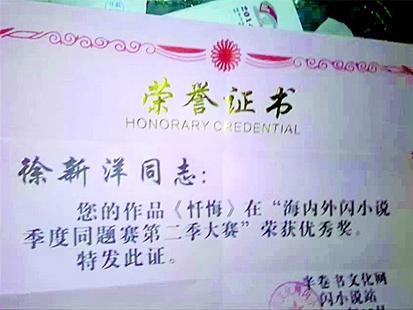 荣誉证书
HONORARY CREDENTIAL
徐新洋同志：
您的作品《忏悔》在“海内外闪小说
季度同题赛第二季大赛”荣获优秀奖。
特发此证。
半卷书文化网
闪小说站